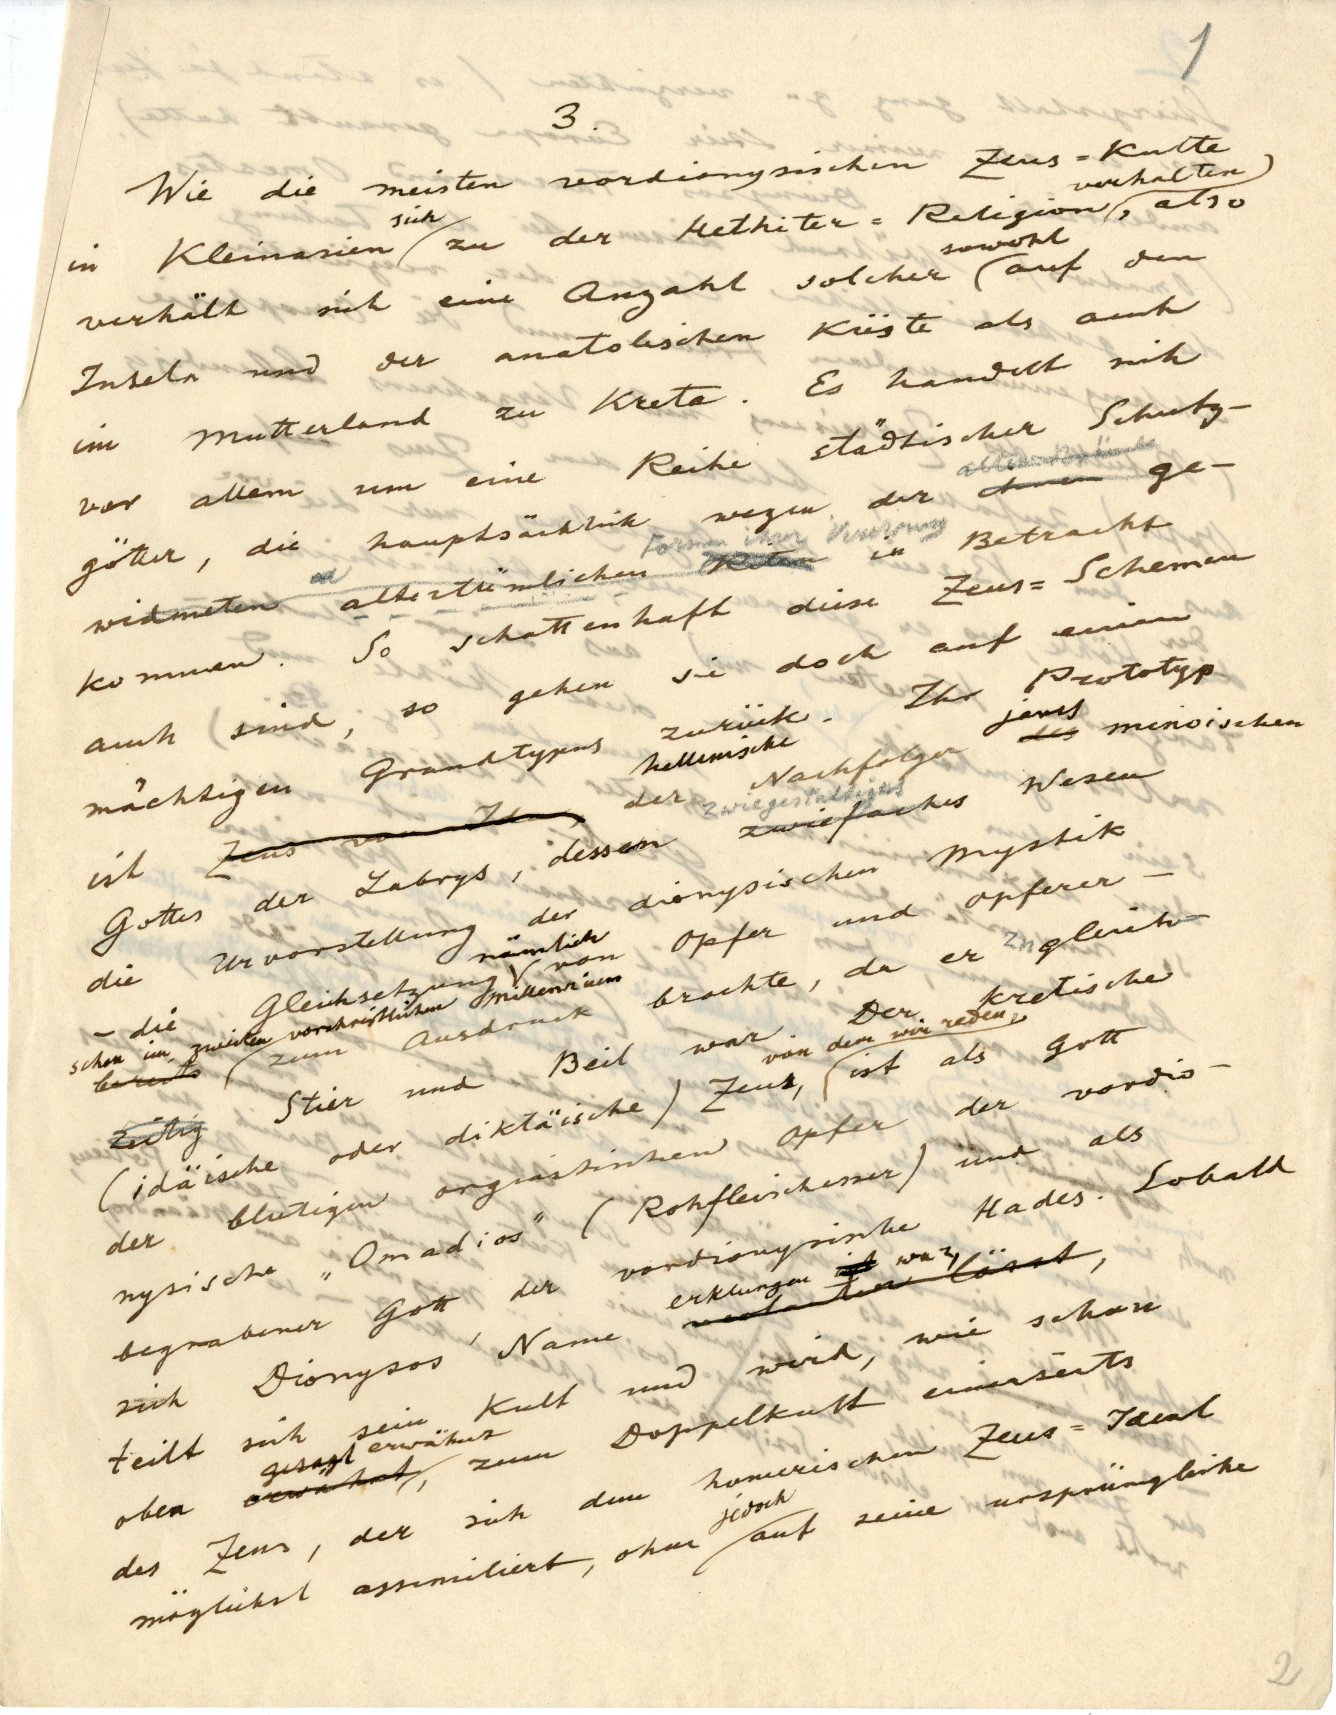 1
3.
Wie die meisten vordionysischen Zeus=Kulte
verhalten
in Kleinasien sich zu der Hethiter=Religion, also
sowohl
verhält sich eine Anzahl solcher auf den
Inseln und der anatolischen Küste als auch
im Mutterland zu Kreta. Es handelt sich
vor allem um eine Reihe städtischer Schutz-
götter, die hauptsächlich wegen der ihnen ge-
Formen ihrer Verehrung
widmeten altertümlichen Riten in Betracht
kommen. So schattenhaft diese Zeus=Schemen
auch sind, so gehen sie doch auf einen
mächtigen Grundtypus zurück. Ihr Prototyp
hellenische jenes
ist Zeus vom Ida, der Nachfolger des minoischen
zwiegestaltiges
Gottes der Labrys, dessen zwiefaches Wesen
die Urvorstellung der dionysischen Mystik
nämlich
– die Gleichsetzung von Opfer und Opferer –
schon im zweiten vorchristlichen Millennium
bereits zum Ausdruck brachte, da er zugleich
zeitig Stier und Beil war. Der kretische
von dem wir reden,
(idäische oder diktäische) Zeus, ist als Gott
der blutigen orgiastischen Opfer der vordio-
nysische „Omadios" (Rohfleischesser) und als
begrabener Gott, der vordionysische Hades. Sobald
erklungen ist war,
sich Dionysos' Name verlauten lässt,
teilt sich sein Kult und wird, wie schon
gesagt erwähnt
oben erwähnt, zum Doppelkult einerseits
des Zeus, der sich dem homerischen Zeus=Ideal
jedoch
möglichst assimiliert, ohne auf seine ursprüngliche
2